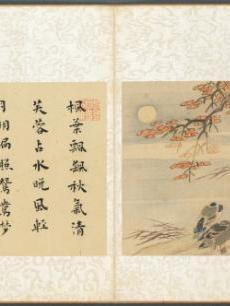 楓葉飄飄秋氣清
芙蓉占水晚風輕
月明偏照鴛鴦夢